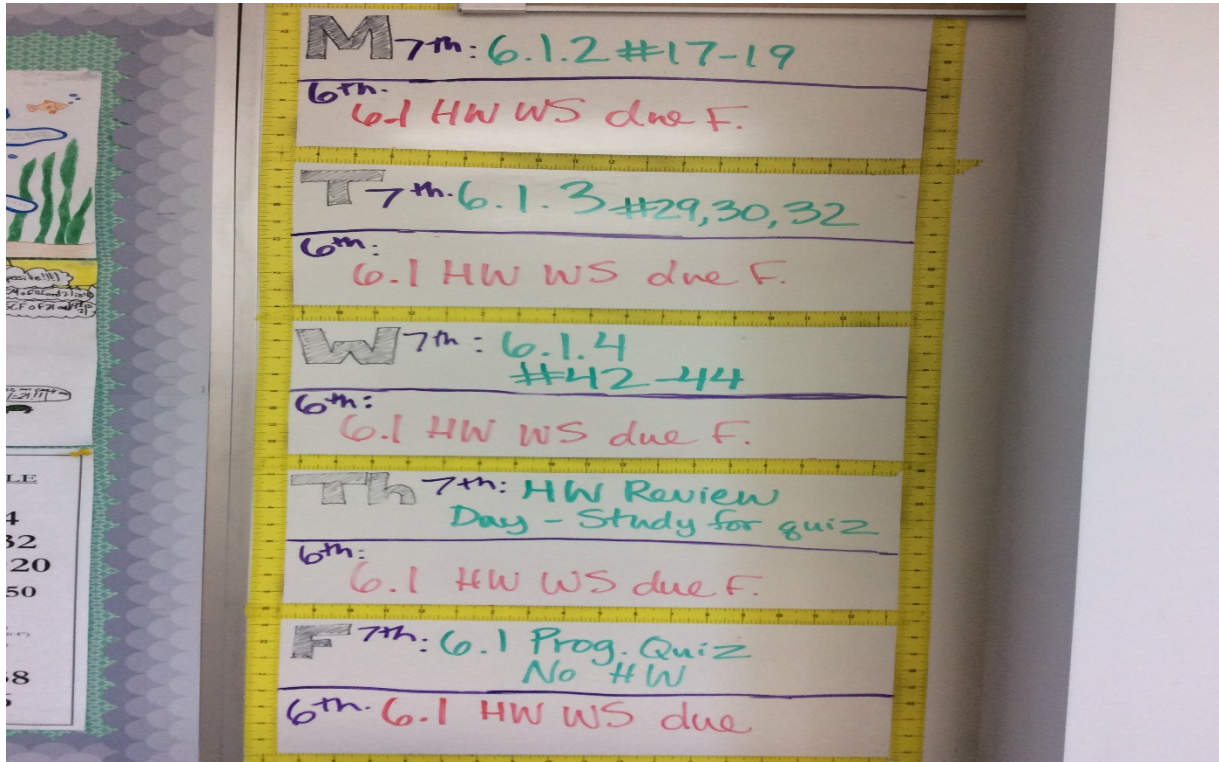 M 7th: 6.1.2 #17-19
6th:
6.1 HW WS due F.
T 7th. 6.1.3 #29,30,32
6th:
6.1 HW WS due F.
W 7th: 6.1.4
#42-44
6th:
6.1 HW WS due F.
Th 7th: HW Review
Day - Study for quiz
6th:
6.1 HW WS due F.
F 7th: 6.1 Prog. Quiz
No HW
6th. 6.1 HW WS due
LE
4
32
20
50